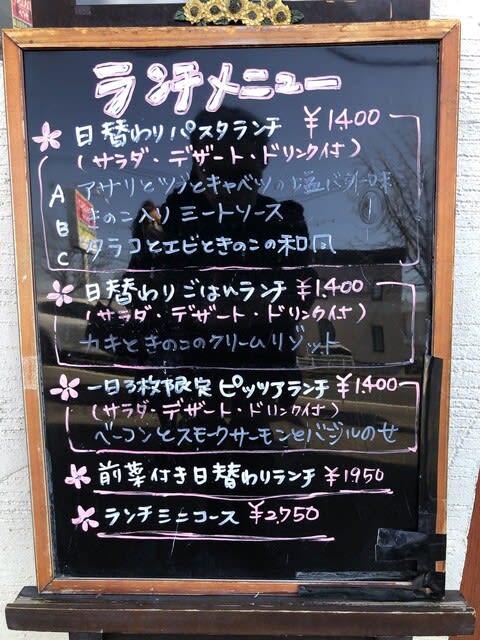 ランチメニュー
日替わりパスタランチ ¥1400
(サラダ・デザート・ドリンク付)
A アサリとツブとキャベツの塩バター味
B きのこ入りミートソース
C タラコとエビときのこの和風
日替わりごはんランチ ¥1,400
(サラダ・デザート・ドリンク付)
カキときのこのクリームリゾット
一日3枚限定 ピッツアランチ ¥1,400
(サラダ・デザート・ドリンク付)
ベーコンとスモークサーモンとバジルのせ
前菜付き日替わりランチ ¥1950
ランチミニコース ¥2,750